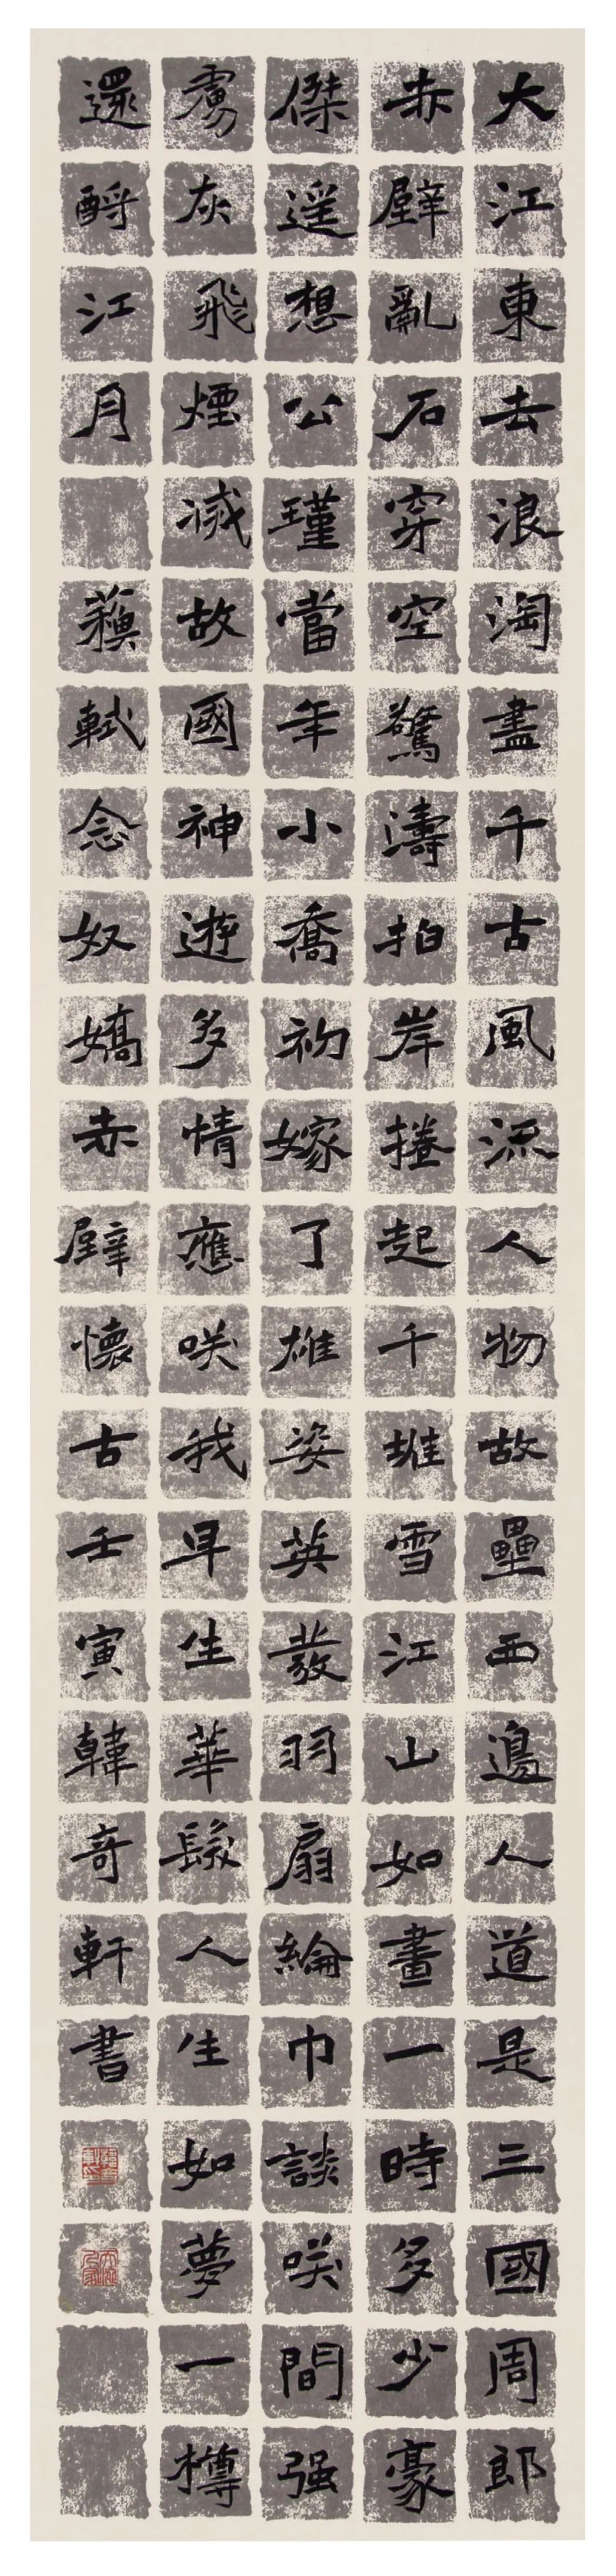 大江東去浪淘盡千古風流人物故壘西邊人道是三國周郎
赤壁亂石穿空驚濤拍岸捲起千堆雪江山如畫一時多少豪
傑遥想公瑾當年小喬初嫁了雄姿英發羽扇綸巾談咲間强
虜灰飛煙滅故國神遊多情應咲我早生華髮人生如夢一樽
還酹江月
蘇軾念奴嬌赤壁懷古壬寅韓奇軒書